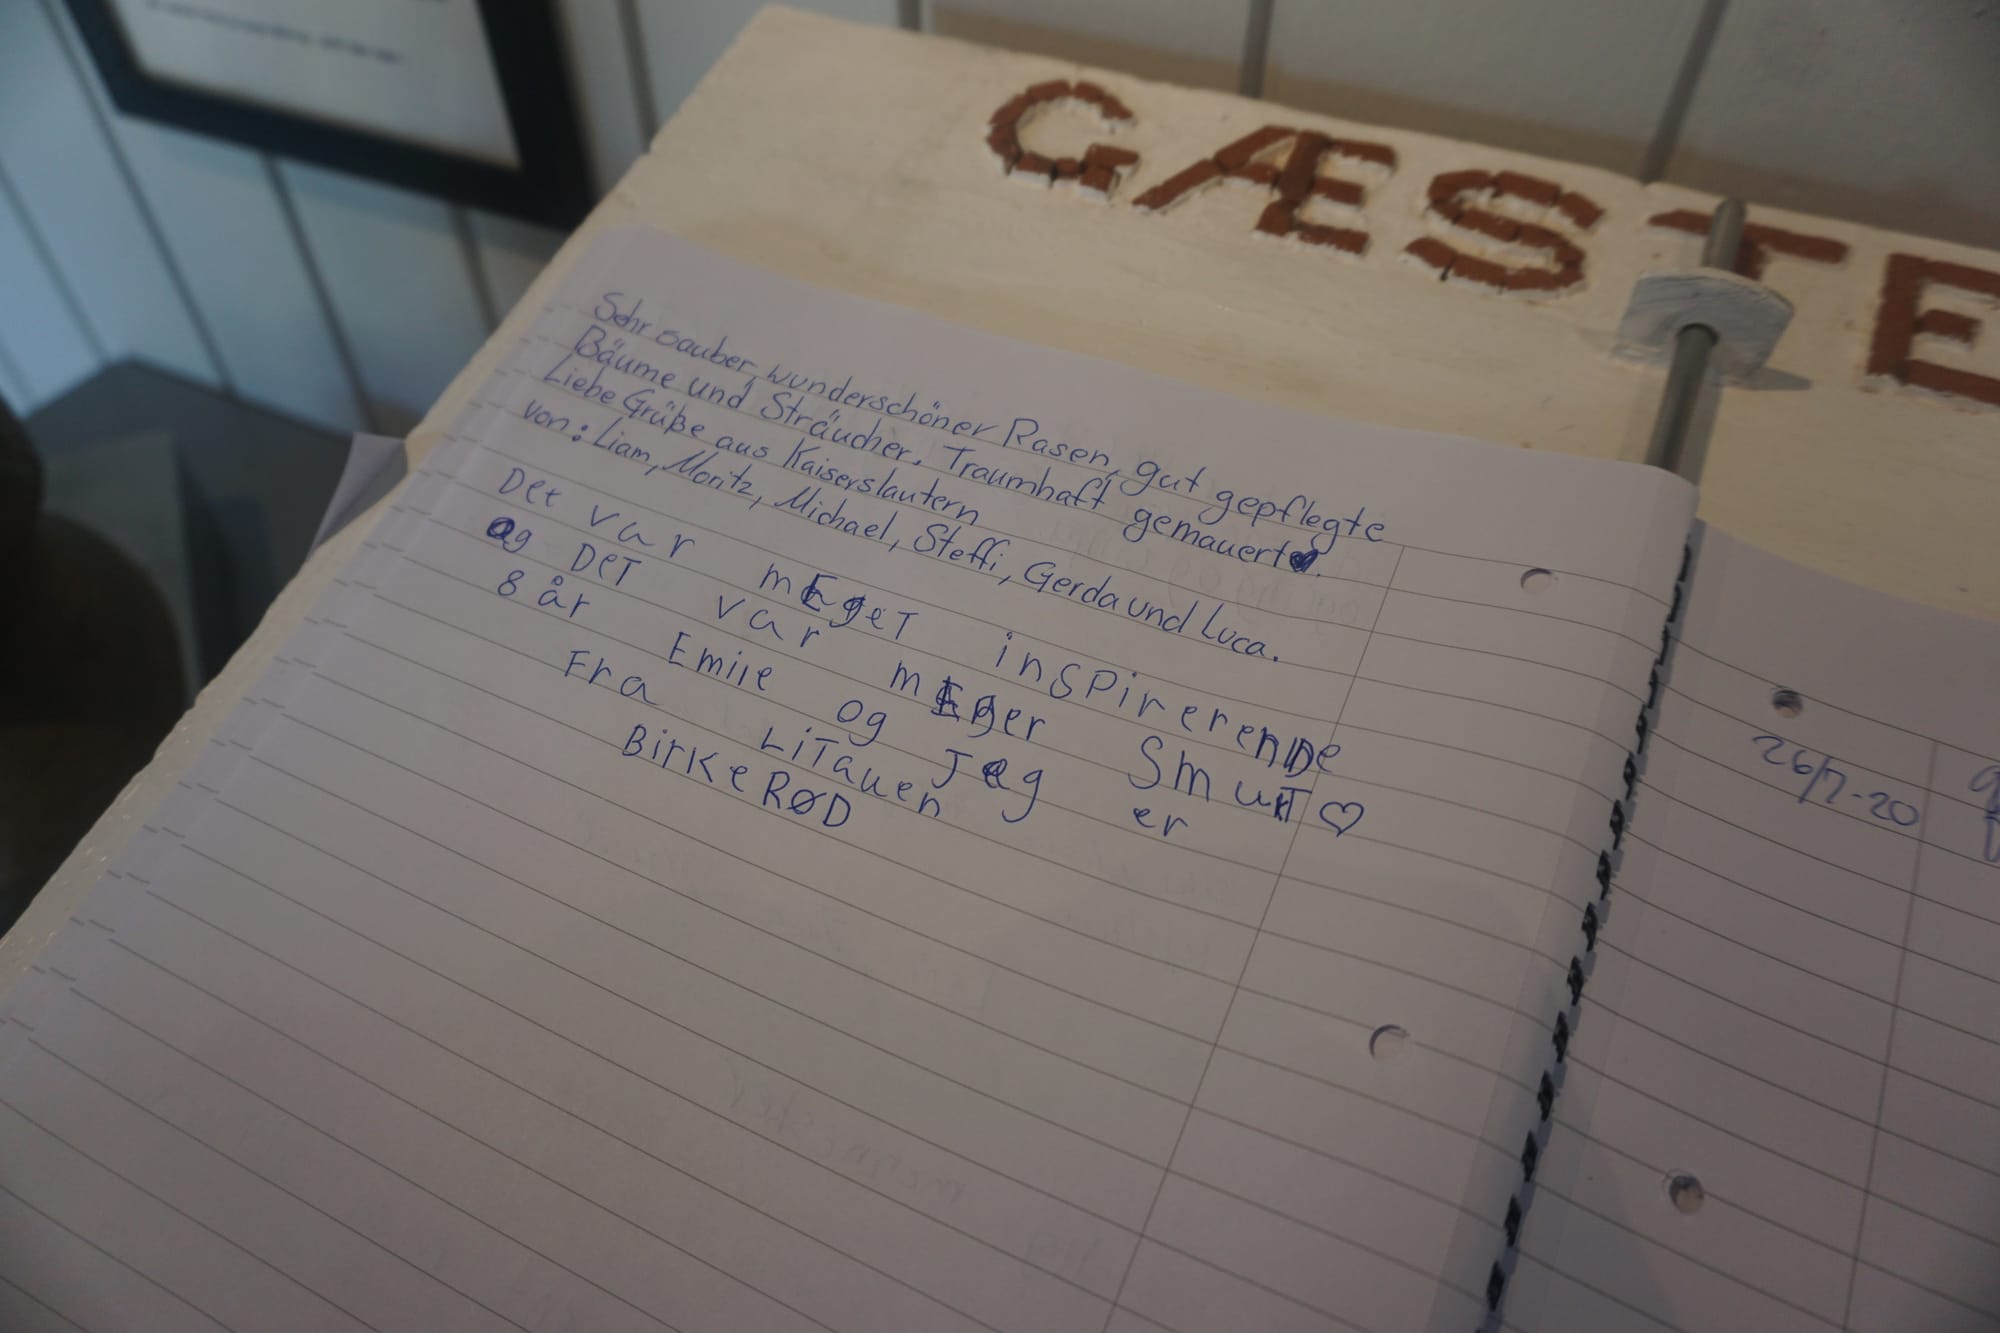 GÆSTE
Sehr sauber, wunderschöner Rasen, gut gepflegte
Bäume und Sträucher. Traumhaft gemauert♥.
Liebe Grüße aus Kaiserslautern
von: Liam, Moritz, Michael, Steffi, Gerda und Luca.
Det var mEgeT inSPirerenDe
og DeT var mEger SmuKT ♡
8 år Emile og Jeg er
Fra LiTauen
BirKeRØD
26/7-20